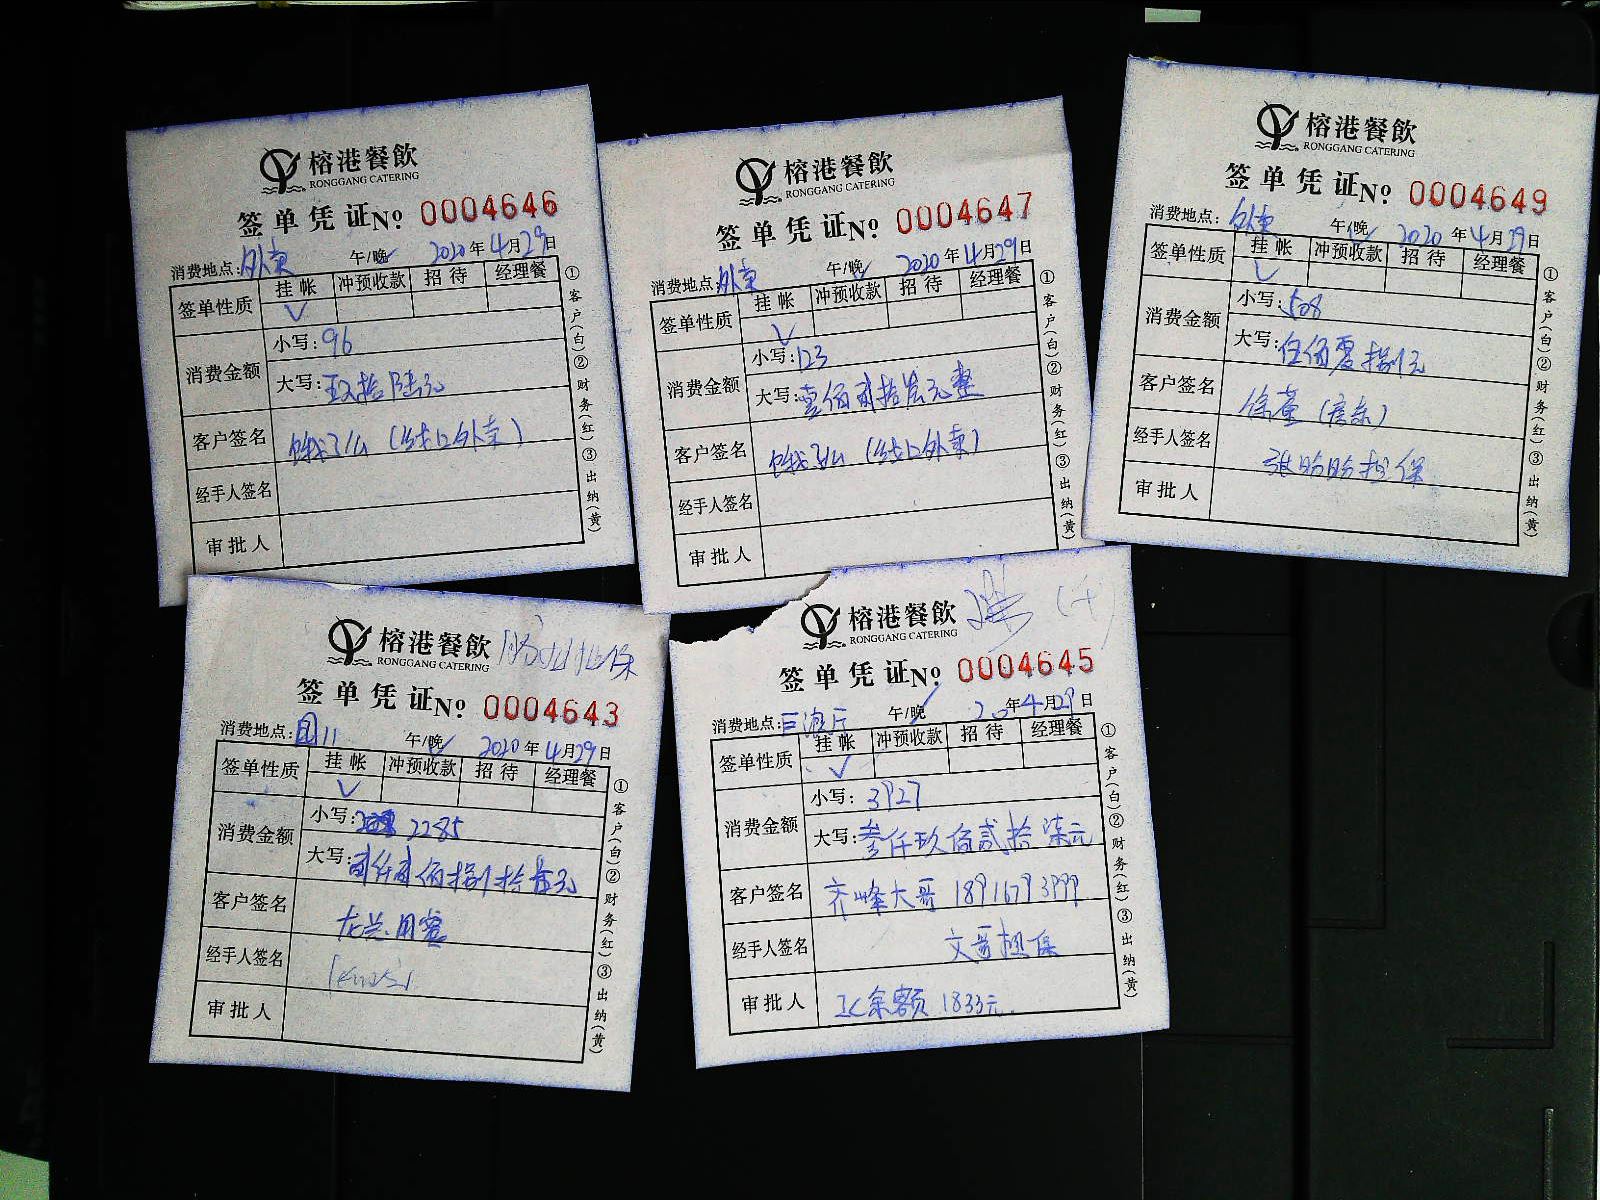 榕港餐飲
RONGGANG CATERING
签单凭证№ 0004646
消费地点: 外卖 午/晚 2020年4月29日
签单性质 挂帐 冲预收款 招待 经理餐
√
消费金额 小写: 96
大写: 玖拾陆元
客户签名 饿了么(线上外卖)
经手人签名
审批人
①客户(白)②财务(红)③出纳(黄)
榕港餐飲
RONGGANG CATERING
签单凭证№ 0004647
消费地点: 外卖 午/晚 2020年4月29日
签单性质 挂帐 冲预收款 招待 经理餐
√
消费金额 小写: 123
大写: 壹佰贰拾叁元整
客户签名 饿了么(线上外卖)
经手人签名
审批人
①客户(白)②财务(红)③出纳(黄)
榕港餐飲
RONGGANG CATERING
签单凭证№ 0004649
消费地点: 外卖 午/晚 2020年4月29日
签单性质 挂帐 冲预收款 招待 经理餐
√
消费金额 小写: 508
大写: 伍佰零捌元
客户签名 徐董(房东)
经手人签名 张盼盼担保
审批人
①客户(白)②财务(红)③出纳(黄)
榕港餐飲
RONGGANG CATERING
签单凭证№ 0004643
消费地点: 国11 午/晚 2020年4月29日
签单性质 挂帐 冲预收款 招待 经理餐
√
消费金额 小写: 2285
大写: 贰仟贰佰捌拾伍元
客户签名
经手人签名
审批人
①客户(白)②财务(红)③出纳(黄)
榕港餐飲
RONGGANG CATERING
签单凭证№ 0004645
消费地点: 巨港厅 午/晚 20年4月29日
签单性质 挂帐 冲预收款 招待 经理餐
√
消费金额 小写: 3927
大写: 叁仟玖佰贰拾柒元
客户签名 齐峰大哥 18916793999
经手人签名 文哥担保
审批人 IC余额 1833元.
①客户(白)②财务(红)③出纳(黄)